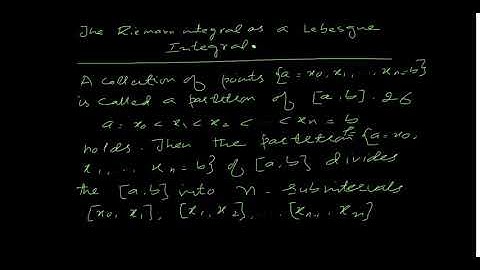 The Riemann integral as a Lebesgue
Integral.
A collection of points {a = x0, x1, .. xn=b}
is called a partition of [a,b]. If
a = x0 < x1 < x2 < < xn = b
holds. Then the partition {a=x0,
x1, .. xn = b} of [a,b] divides
the [a,b] into n - subintervals
[x0, x1], [x1, x2], ... [xn-1, xn]